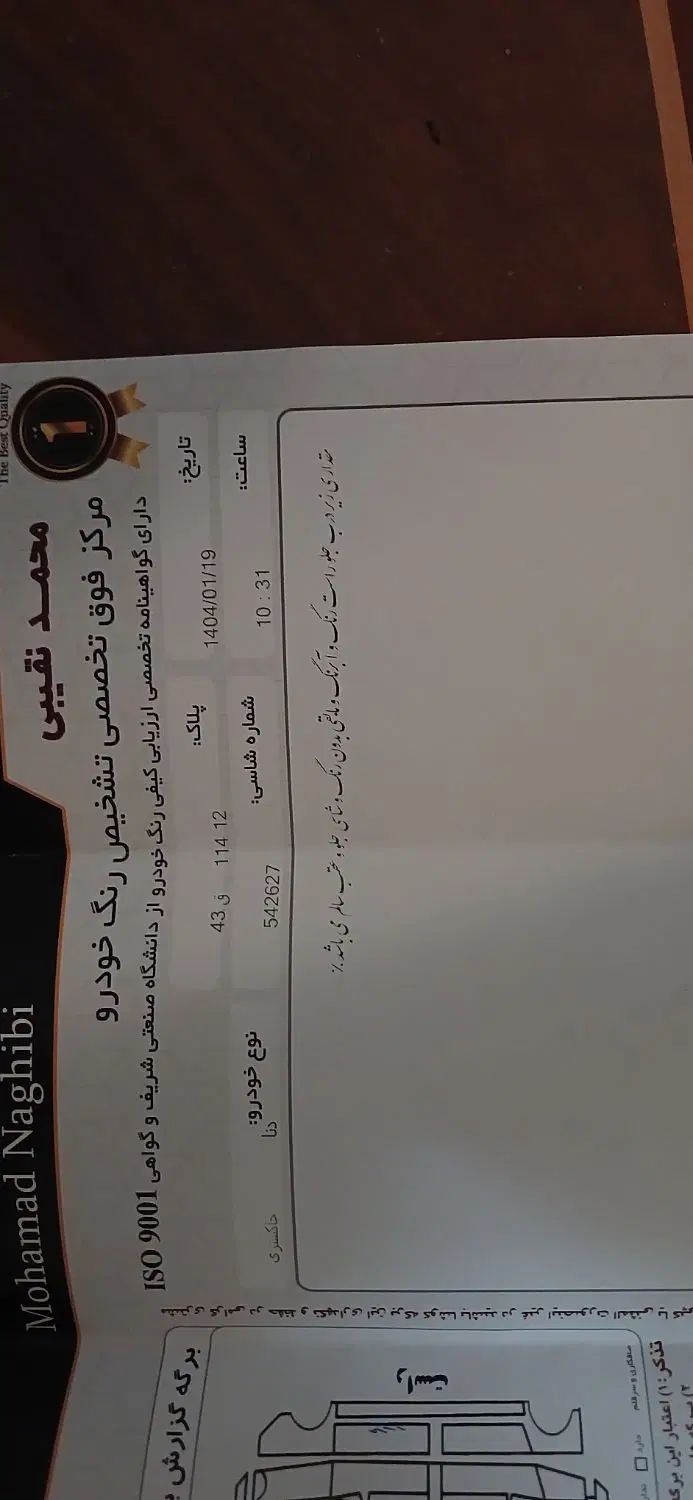 Mohamad Naghibi
محمد نقیبی
The Best Quality
1
مرکز فوق تخصصی تشخیص رنگ خودرو
دارای گواهینامه تخصصی ارزیابی کیفی رنگ خودرو از دانشگاه صنعتی شریف و گواهی ISO 9001
تاریخ: 1404/01/19
پلاک: 12 114 ق 43
ساعت: 10 : 31
شماره شاسی: 542627
نوع خودرو: دنا
خاکستری
مقداری زیر درب جلو راست رنگ و آبرنگ و مابقی بدون رنگ و شاسی جلو و عقب سالم می باشد./
برگه گزارش
صافکاری و سرقلم
دارد
تذکر: ۱) اعتبار این